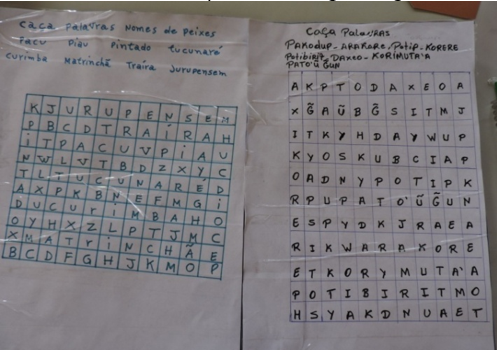 caça Palavras Nomes de Peixes
Pacu Piau Pintado tucunaré
curimba Matrinchã Traíra Jurupensem
K J U R U P E N S E M
P B C D T R A I R A H
i T P A C U V P i A U
N W L V T B D Z X Y C
T L T U C U N A R E D
A X P K B N E F M G i
D U C U R I M B A H O
O Y H X Z L P T J M C
X M A T r i N C H Ã E
B C D F G H J K M O P
Caça Palavras
Pakodup - ARAKARE - Potip - KORERE
Potibirit, DAXEO - KORIMUTA'A
PATO'Ü GÜN
A K P T O D A X E O A
X G̃ A Ü B G̃ S I T M J
I T K Y H D A Y W U P
K Y O S K U B C I A P
O A D N Y P O T I P K
R P U P A T O' Ü G̃ U N
E S P Y D K J R A E A
R I K W A R A K O R E
E T K O R Y M U T A'A
P O T I B I R I T M O
H S Y A K D N U A E T